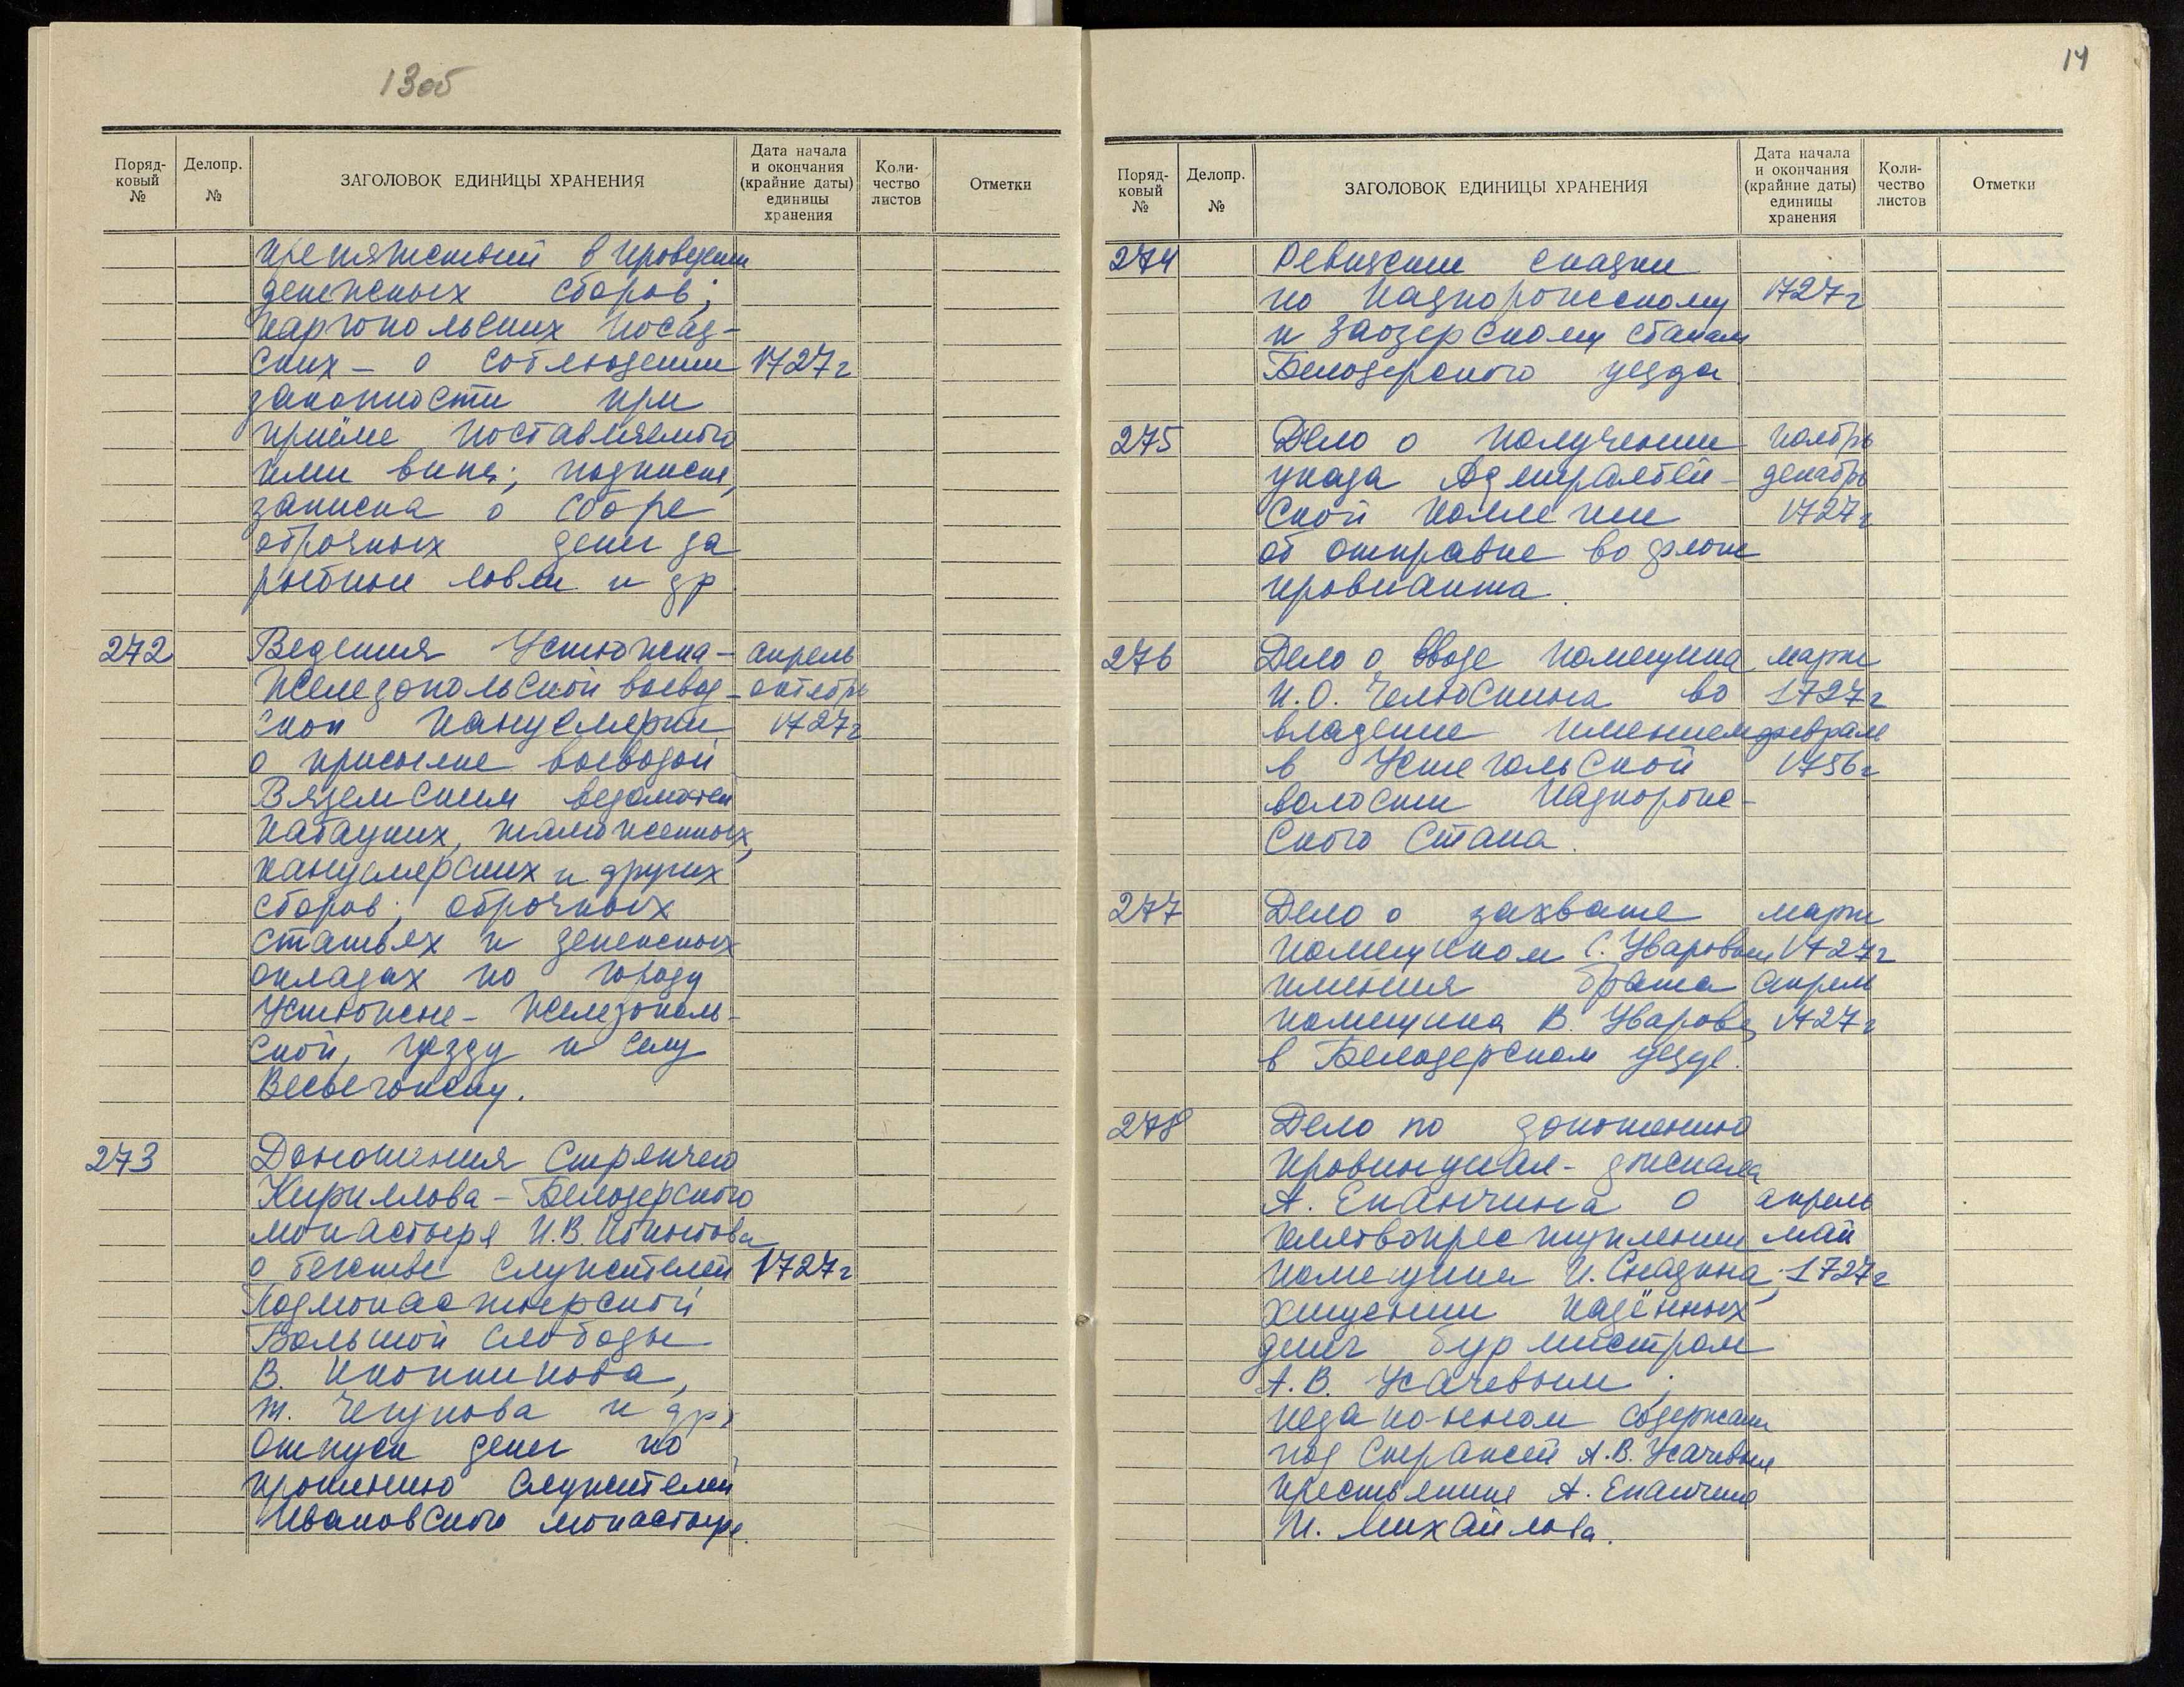 13об
Поряд-
ковый
№
Делопр.
№
ЗАГОЛОВОК ЕДИНИЦЫ ХРАНЕНИЯ
Дата начала
и окончания
(крайние даты)
единицы
хранения
Коли-
чество
листов
Отметки
препятствий в проведении
денежных сборов;
каргопольских посад-
ских – о соблюдении 1727 г
законности при
приёме поставляемого
ими вина; подписка,
записка о сборе
оброчных денег за
рыбные ловли и др
272 Ведения Устюжна- апрель
Железопольской воевод- октябрь
ской канцелярии 1727 г
о присылке воеводой
Вяземским ведомостей
кабацких, таможенных,
канцелярских и других
сборов; оброчных
статьях и денежных
окладах по городу
Устюжне-Железополь-
ской, уезду и селу
Весьегонску.
273 Доношения стряпчего
Кириллова-Белозерского
монастыря И.В.
о бегстве служителей 1727 г
Подмонастырской
Большой слободы
В. Иконникова,
Т. Чегунова и др;
отпуск денег по
прошению служителей
Ивановского монастыря.
14
Поряд-
ковый
№
Делопр.
№
ЗАГОЛОВОК ЕДИНИЦЫ ХРАНЕНИЯ
Дата начала
и окончания
(крайние даты)
единицы
хранения
Коли-
чество
листов
Отметки
274 Ревизские сказки
по Надпорожскому 1727 г
и Заозерскому станам
Белозерского уезда
275 Дело о получении ноябрь
указа Адмиралтей- декабрь
ской коллегии 1727 г
об отправке во флот
провианта.
276 Дело о вводе помещика март
И.О. Челюскина во 1727 г
владение имением февраль
в Устегольской 1756 г
волости Надпорож-
ского стана.
277 Дело о захвате март
помещиком С. Уваровым 1727 г
имения брата апрель
помещика В. Уварова 1727 г
в Белозерском уезде.
278 Дело по доношению
провинциал-фискала
А. Епанчина о апрель
клятвопреступлении май
помещика И. Скадина; 1727 г
хищении казённых
денег бурмистром
А.В. Усачевым;
незаконном содержании
под стражей А.В. Усачевым
крестьянина А. Епанчина
И. Михайлова.